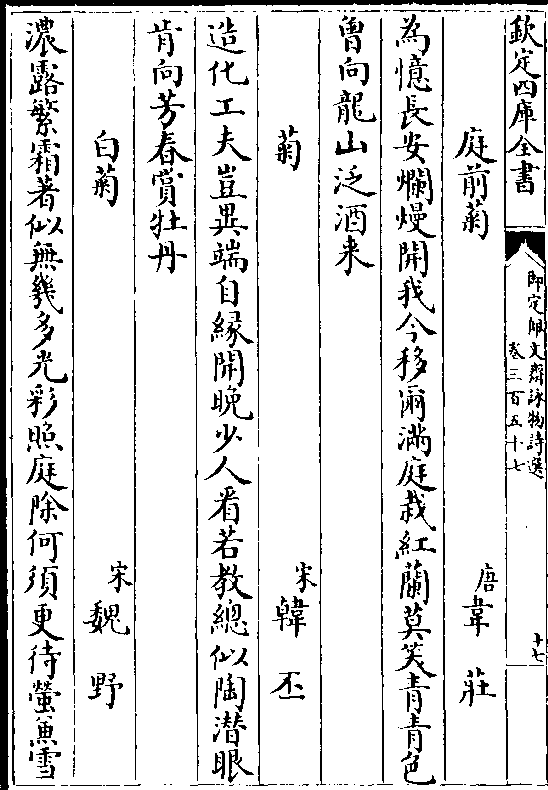 欽定四庫全書
御定佩文齋詠物詩選
卷三百五十七
十七
庭前菊
唐韋莊
為憶長安爛熳開我今移爾滿庭栽紅蘭莫笑青青色
曾向龍山泛酒来
菊
宋韓丕
造化工夫豈異端自縁開晚少人看若教總似陶潛眼
肯向芳春賞牡丹
白菊
宋魏野
濃露繁霜著似無幾多光彩照庭除何須更待螢兼雪